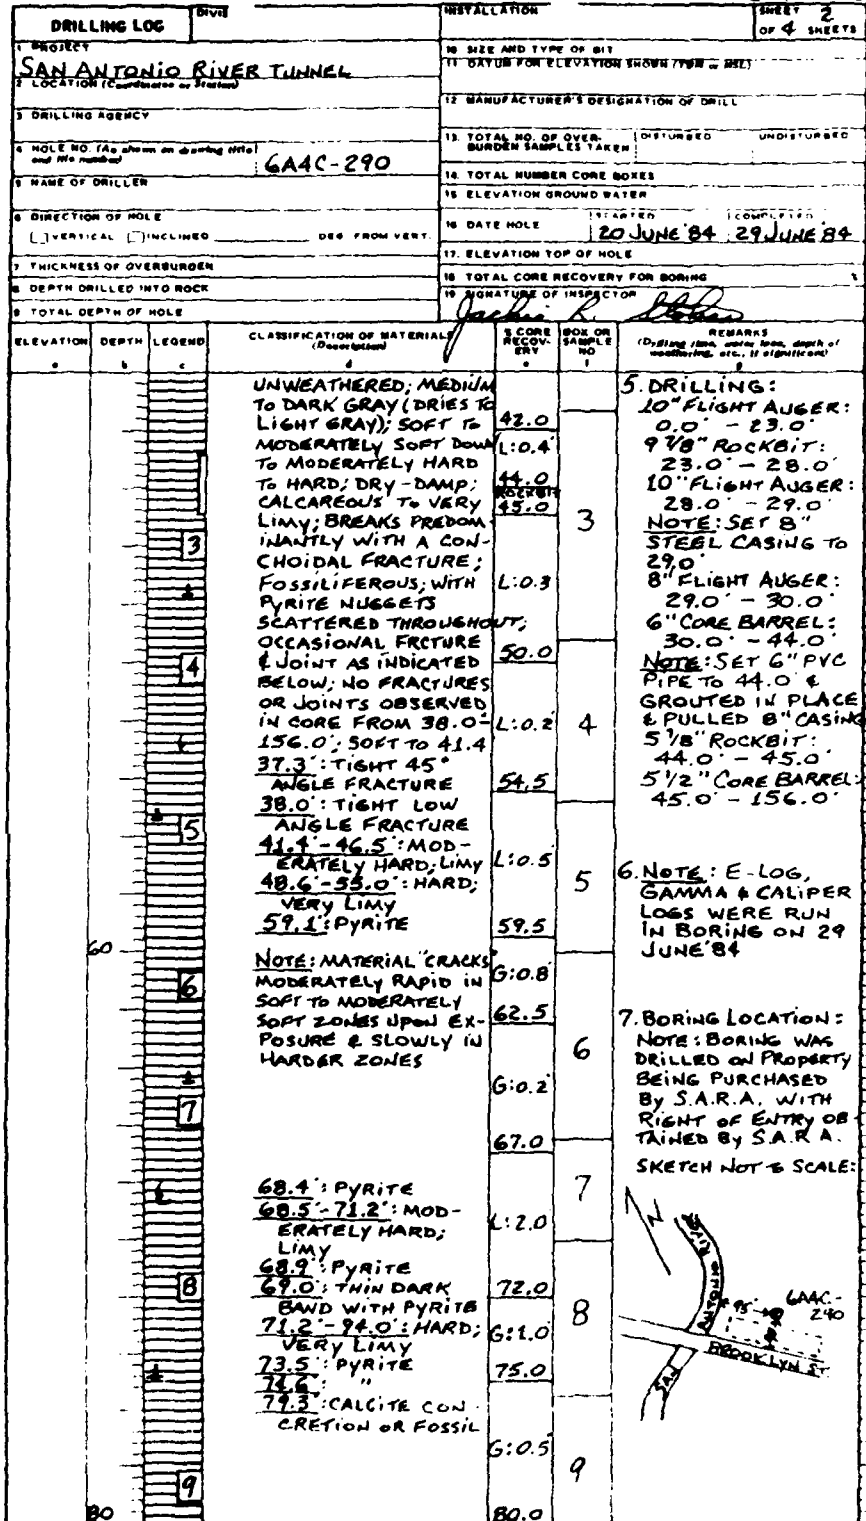 DRILLING LOG
DIVIS
INSTALLATION
SHEET 2
OF 4 SHEETS
1 PROJECT
SAN ANTONIO RIVER TUNNEL
2 LOCATION (Coordinates or Station)
3 DRILLING AGENCY
4 HOLE NO. (As shown on drawing title
and file number)
6A4C-290
5 NAME OF DRILLER
6 DIRECTION OF HOLE
VERTICAL INCLINED DEG FROM VERT.
7 THICKNESS OF OVERBURDEN
8 DEPTH DRILLED INTO ROCK
9 TOTAL DEPTH OF HOLE
10 SIZE AND TYPE OF BIT
11 DATUM FOR ELEVATION SHOWN (TBM or MSL)
12 MANUFACTURER'S DESIGNATION OF DRILL
13. TOTAL NO. OF OVER-
BURDEN SAMPLES TAKEN
DISTURBED
UNDISTURBED
14. TOTAL NUMBER CORE BOXES
15 ELEVATION GROUND WATER
16 DATE HOLE
STARTED
COMPLETED
20 JUNE '84
29 JUNE '84
17. ELEVATION TOP OF HOLE
18 TOTAL CORE RECOVERY FOR BORING %
19 SIGNATURE OF INSPECTOR
Jackie R.
ELEVATION
a
DEPTH
b
LEGEND
c
CLASSIFICATION OF MATERIALS
(Description)
d
% CORE
RECOV-
ERY
e
BOX OR
SAMPLE
NO
f
REMARKS
(Drilling time, water loss, depth of
weathering, etc., if significant)
g
60
80
3
4
5
6
7
8
9
UNWEATHERED; MEDIUM
TO DARK GRAY (DRIES TO
LIGHT GRAY); SOFT TO
MODERATELY SOFT DOWN
TO MODERATELY HARD
TO HARD; DRY-DAMP;
CALCAREOUS TO VERY
LIMY; BREAKS PREDOM-
INANTLY WITH A CON-
CHOIDAL FRACTURE;
FOSSILIFEROUS; WITH
PYRITE NUGGETS
SCATTERED THROUGHOUT;
OCCASIONAL FRCTURE
& JOINT AS INDICATED
BELOW; NO FRACTURES
OR JOINTS OBSERVED
IN CORE FROM 38.0-
156.0'; SOFT TO 41.4
37.3': TIGHT 45°
ANGLE FRACTURE
38.0': TIGHT LOW
ANGLE FRACTURE
41.4'-46.5': MOD-
ERATELY HARD; LIMY
48.6'-55.0': HARD;
VERY LIMY
59.1': PYRITE
NOTE: MATERIAL "CRACKS"
MODERATELY RAPID IN
SOFT TO MODERATELY
SOFT ZONES UPON EX-
POSURE & SLOWLY IN
HARDER ZONES
68.4': PYRITE
68.5'-71.2': MOD-
ERATELY HARD;
LIMY
68.9': PYRITE
69.0': THIN DARK
BAND WITH PYRITE
71.2'-94.0': HARD;
VERY LIMY
73.5': PYRITE
74.6': "
79.3': CALCITE CON-
CRETION OR FOSSIL
42.0
L:0.4'
44.0
ROCKBIT
45.0
L:0.3
50.0
L:0.2
54.5
L:0.5
59.5
G:0.8
62.5
G:0.2
67.0
L:2.0
72.0
G:1.0
75.0
G:0.5
80.0
3
4
5
6
7
8
9
5. DRILLING:
10" FLIGHT AUGER:
0.0' - 23.0'
9 7/8" ROCKBIT:
23.0' - 28.0'
10" FLIGHT AUGER:
28.0' - 29.0'
NOTE: SET 8"
STEEL CASING TO
29.0'
8" FLIGHT AUGER:
29.0' - 30.0'
6" CORE BARREL:
30.0' - 44.0'
NOTE: SET 6" PVC
PIPE TO 44.0' &
GROUTED IN PLACE
& PULLED 8" CASING
5 7/8" ROCKBIT:
44.0' - 45.0'
5 1/2" CORE BARREL:
45.0' - 156.0'
6. NOTE: E-LOG,
GAMMA & CALIPER
LOGS WERE RUN
IN BORING ON 29
JUNE '84
7. BORING LOCATION:
NOTE: BORING WAS
DRILLED ON PROPERTY
BEING PURCHASED
BY S.A.R.A. WITH
RIGHT OF ENTRY OB-
TAINED BY S.A.R.A.
SKETCH NOT TO SCALE:
N
SAN ANTONIO RIVER
95'
6A4C-
290
BROOKLYN ST